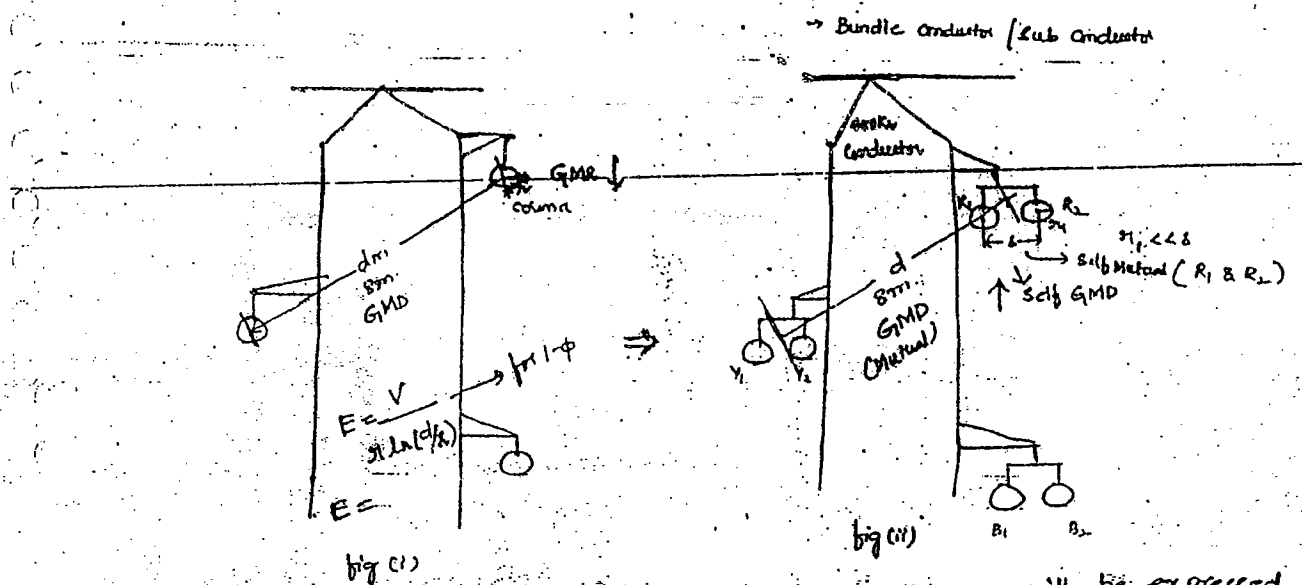 → Bundle conductor / Sub conductor
GMR ↓
corona
dm
8m.
GMD
E = V / r ln(d/r) → for 1-ϕ
E =
fig (i)
⇒
conductor
R1 R2
r1
← s →
r1 << s
→ Self Mutual ( R1 & R2 )
↑ ↓ Self GMD
d
8m.
GMD
(Mutual)
Y1 Y2
B1 B2
fig (ii)
be expressed